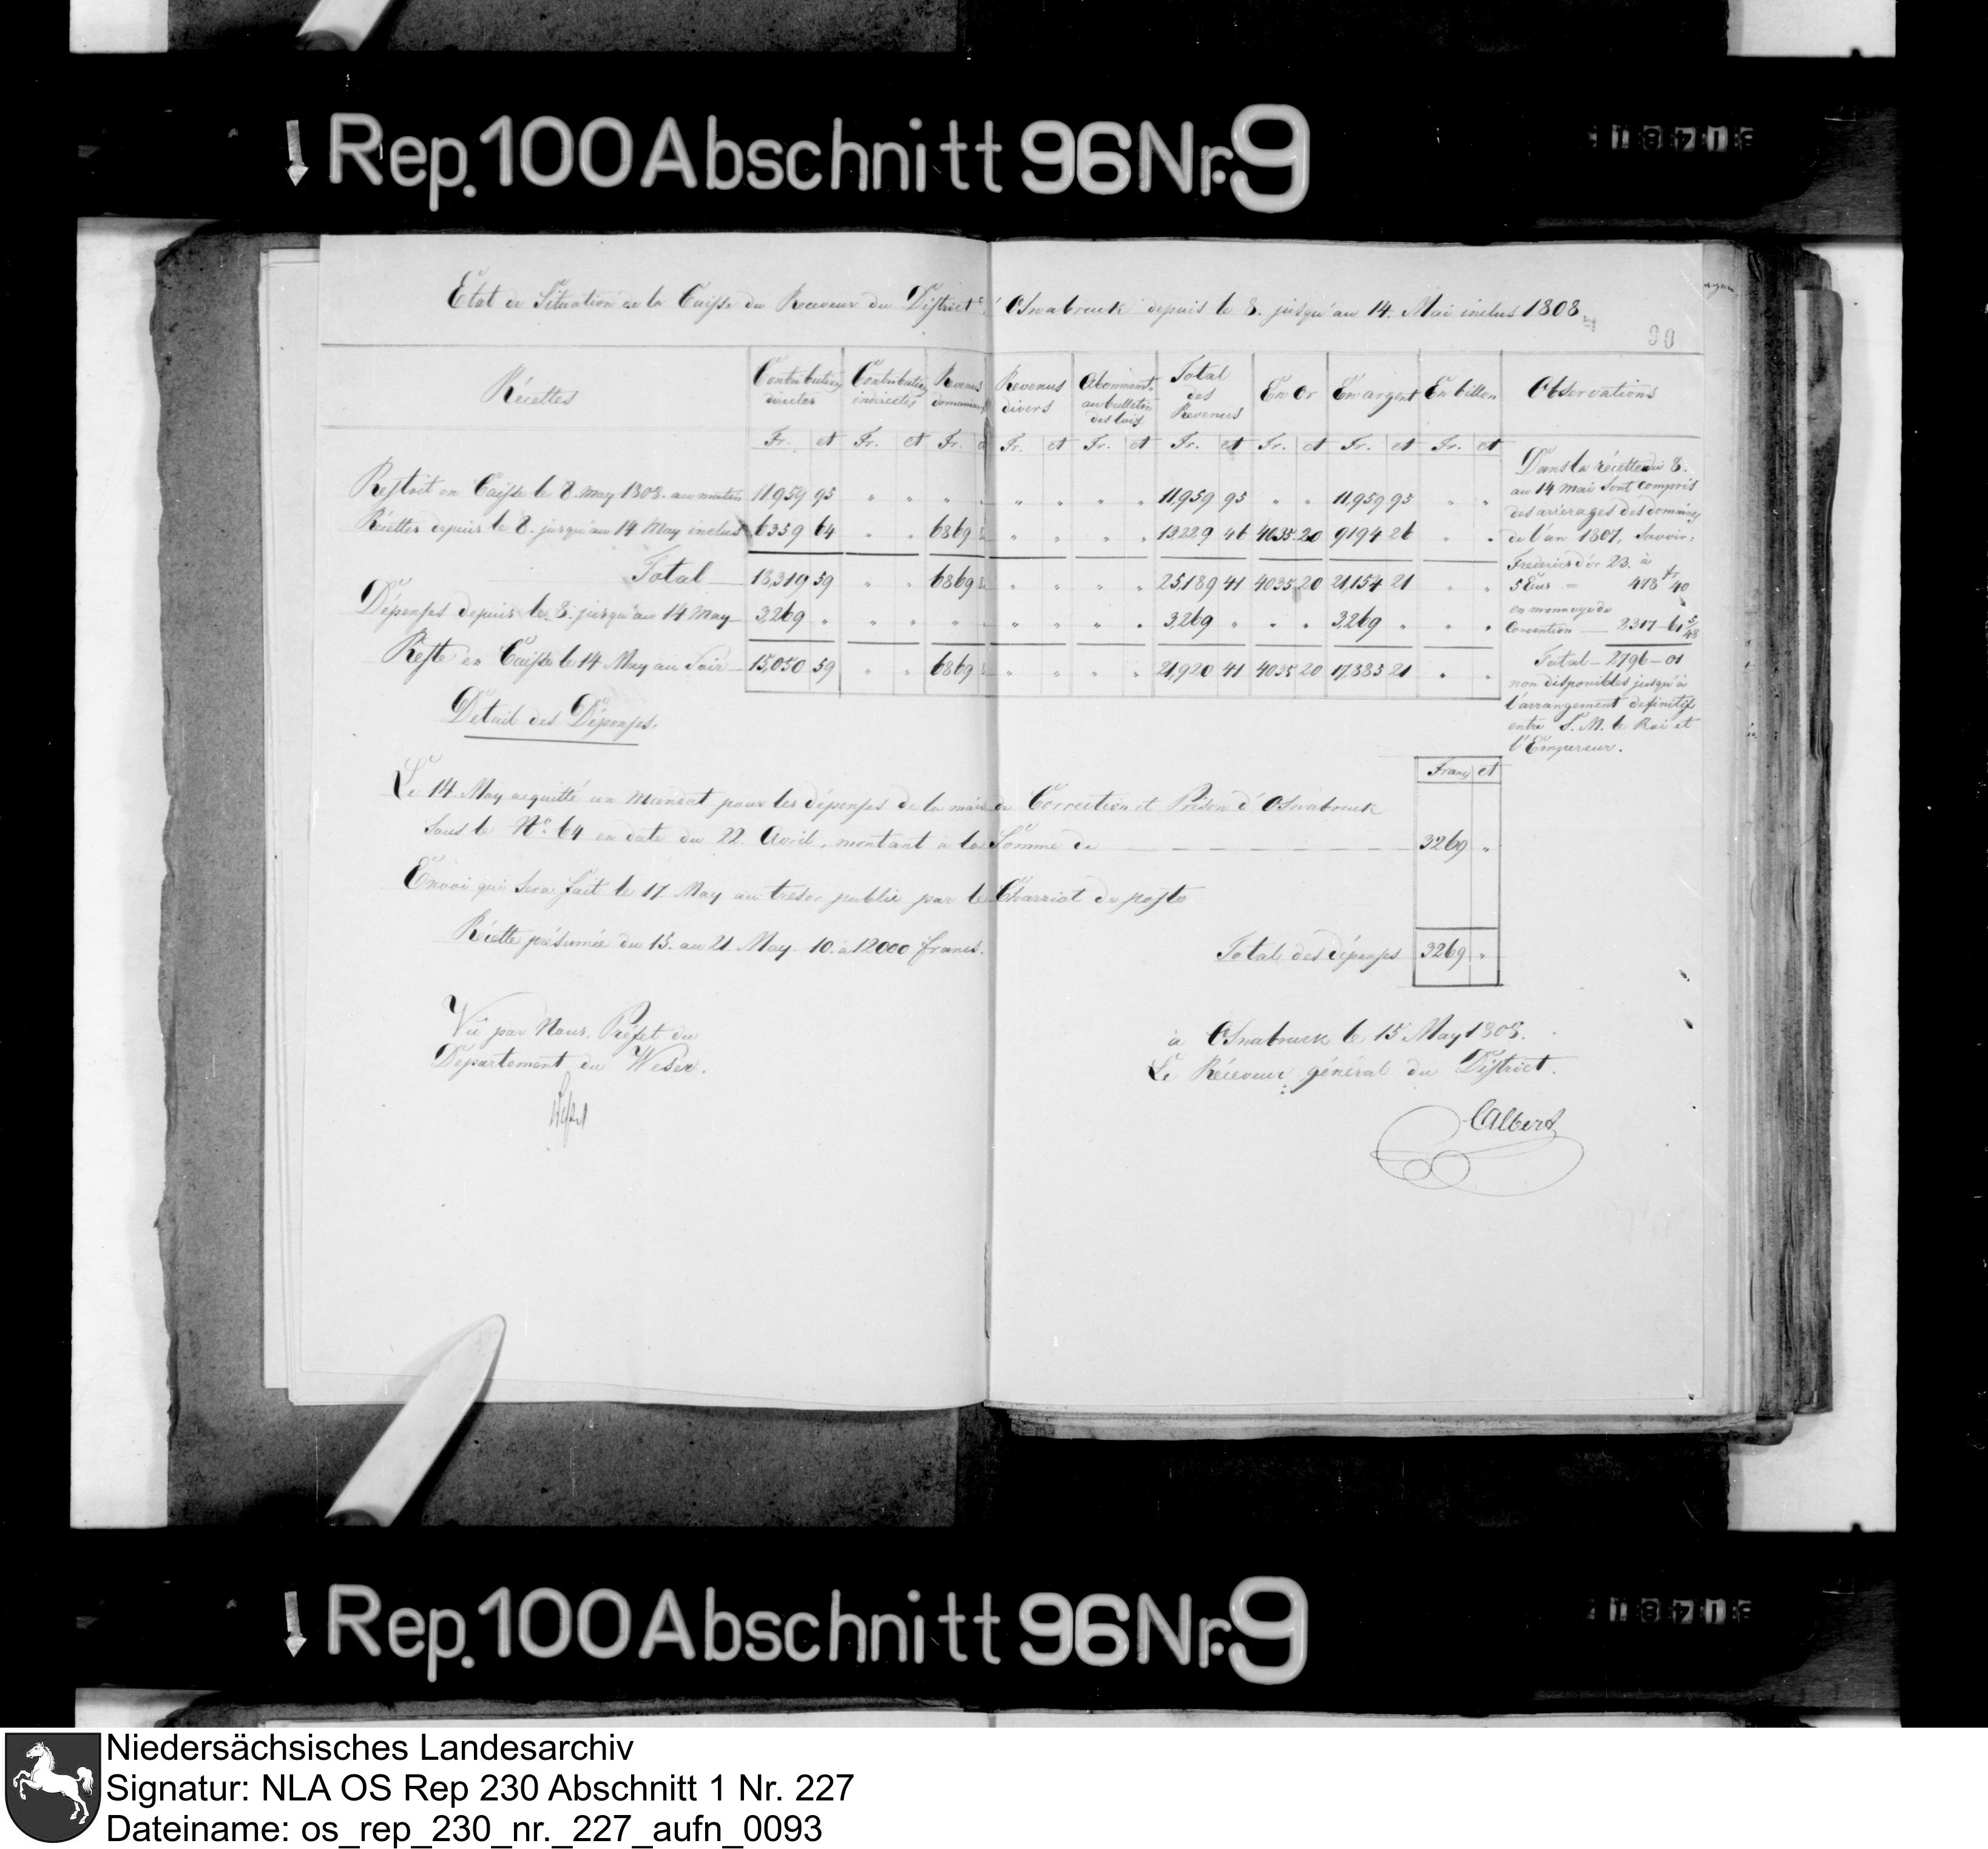 Rep. 100 Abschnitt 96 Nr. 9
Etat de Situation de la Caisse du Receveur du District d'Osnabruck depuis le 8. jusqu'au 14. Mai inclus 1808
90
Récettes | Contributions directes | Contributions indirectes | Revenus domaniaux | Revenus divers | Abonnemt. au bulletin des lois | Total des Revenus | En Or | En argent | En billon | Observations
Fr. ct | Fr. ct | Fr. | Fr. ct | Fr. ct | Fr. ct | Fr. ct | Fr. ct | Fr. ct
Restoit en Caisse le 8. May 1808. au matin 11959 95 " " " " " " " 11,959 95 " " 11,959 95 " "
Récettes depuis le 8. jusqu'au 14 May inclus 6359 64 " " 6869 " " " " 13229 46 4035 20 9194 26 " "
Total 18,319 59 " " 6869 " " " " 25,189 41 4035 20 21,154 21 " "
Dépenses depuis le 8. jusqu'au 14 May 3,269 " " " " " " " " " 3,269 " " " 3,269 " " "
Reste en Caisse le 14 May au Soir 15,050 59 " " 6869 " " " " 21,920 41 4035 20 17,885 21 " "
Dans la récette du 8.
au 14 mai sont compris
des arrerages des domaines
de l'an 1807, Savoir:
Frederics d'or 23. à
5 Ecus = 478 fr 40
en monnoye de
Convention 2,317 - 61
Total - 2796 - 01
non disponibles jusqu'à
l'arrangement definitif
entre S. M. le Roi et
l'Empereur.
Détail des Dépenses.
Francs ct
Le 14 May acquitté un mandat pour les dépenses de la maison de Correction et Prison d'Osnabruck
sous le No. 64 en date du 22. Avril, montant à la Somme de 3269 "
Envoi qui sera fait le 17. May au tresor public par le Charriot de poste
Récette présumée du 15. au 21. May 10. à 12000 francs.
Total des dépenses 3269 "
Vû par Nous, Préfet du
Departement du Weser.
à Osnabruck le 15 May 1808.
Le Réceveur général du District.
CAlbers
Rep. 100 Abschnitt 96 Nr. 9
Niedersächsisches Landesarchiv
Signatur: NLA OS Rep 230 Abschnitt 1 Nr. 227
Dateiname: os_rep_230_nr._227_aufn_0093